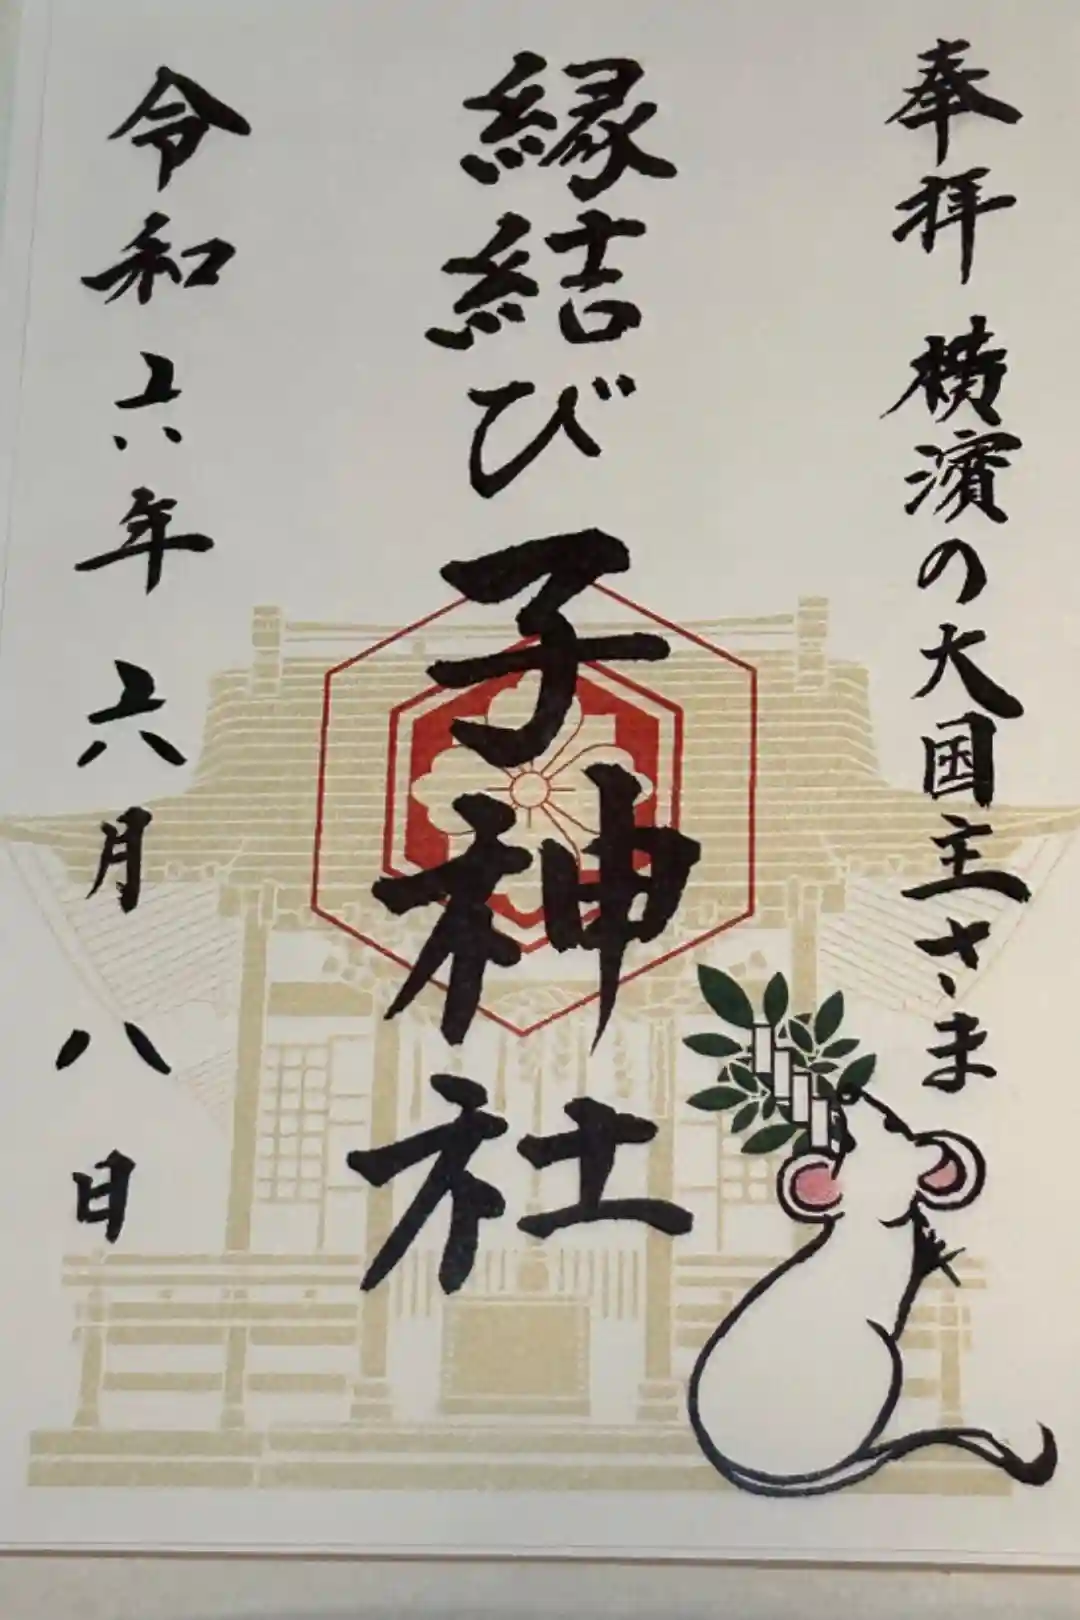 奉拝 横濱の大国主さま
縁結び 子神社
令和六年六月八日